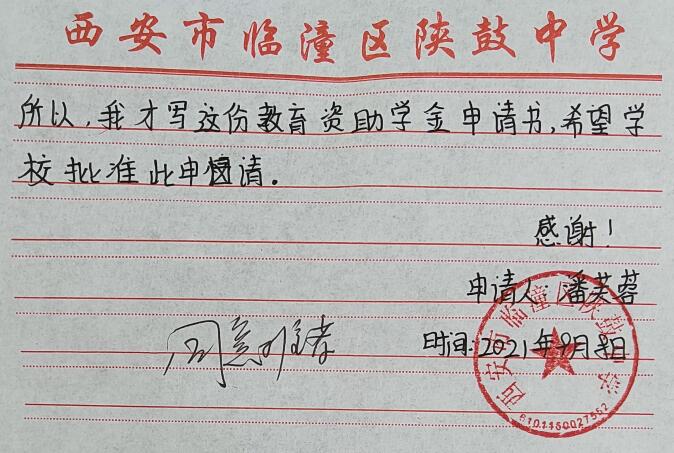 西安市临潼区陕鼓中学
所以,我才写这份教育资助学金申请书,希望学
校批准此申请。
感谢!
申请人:潘芙蓉
时间:2021年9月8日
西安市临潼区陕鼓中学